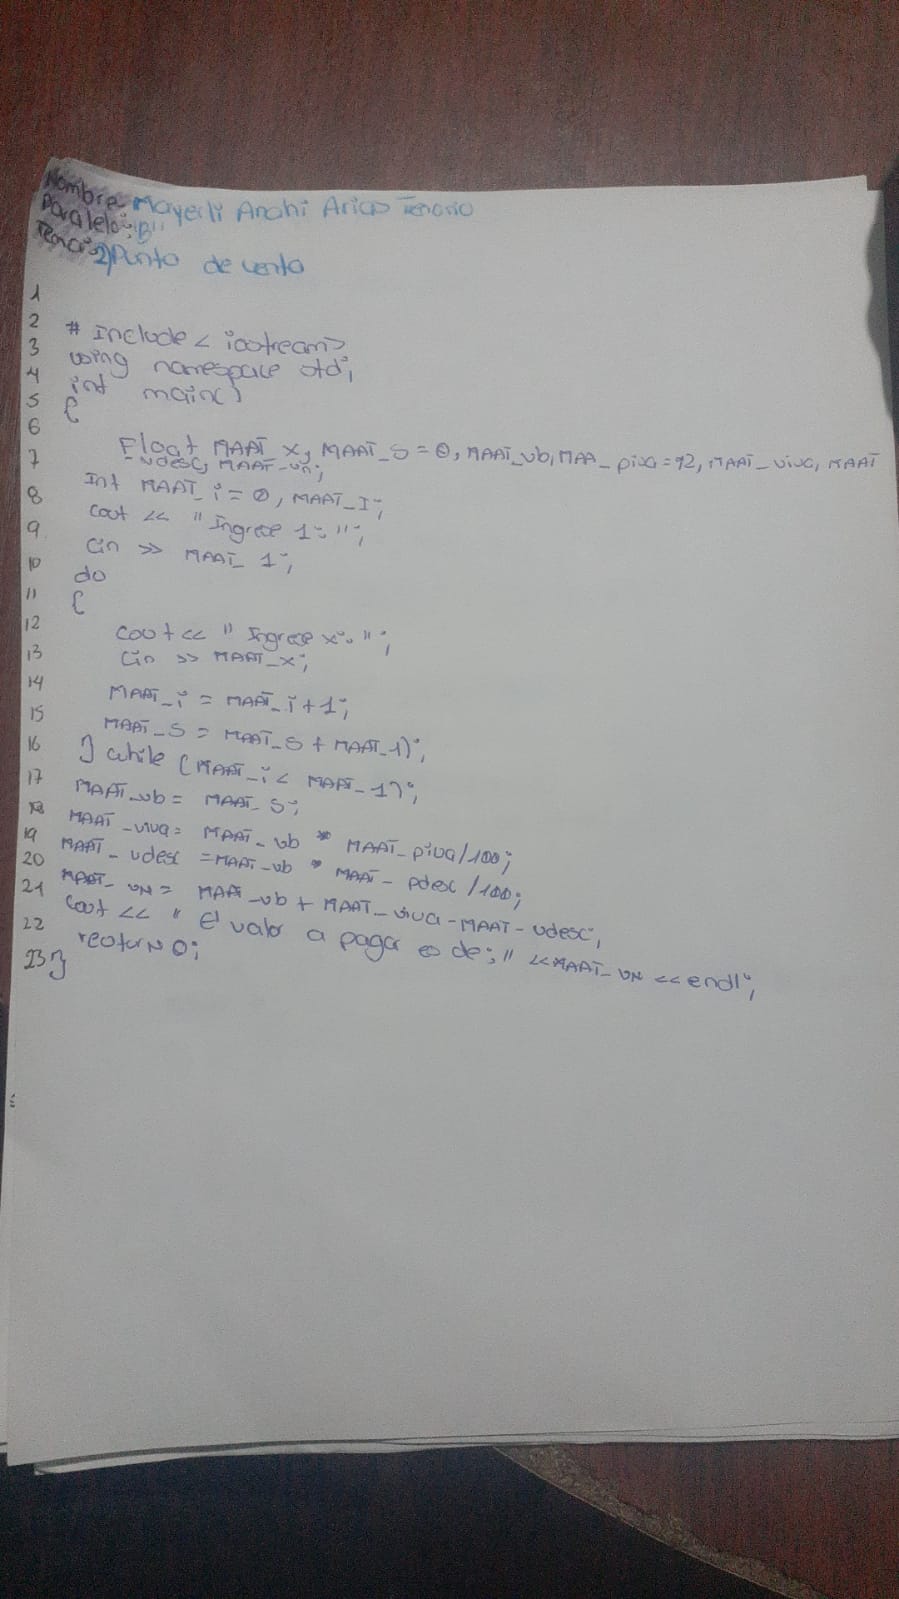 Nombre: Mayerli Anahi Arias Tenorio
Paralelo: "B"
2) Punto de venta
1
2 # Include < iostream>
3 using namespace std;
4 int main()
5 {
6 Float MAAT_x, MAAT_s = 0, MAAT_vb, MAA_piva = 12, MAAT_viva, MAAT
7 _vdesc, MAAT_vn;
8 Int MAAT_i = 0, MAAT_I;
9 cout << "Ingrese 1:";
cin >> MAAT_1;
10 do
11 {
12 cout << "Ingrese x:";
13 cin >> MAAT_x;
14 MAAT_i = MAAT_i + 1;
15 MAAT_s = MAAT_s + MAAT_1);
16 } while (MAAT_i < MAAT_1);
17 MAAT_vb = MAAT_s;
18 MAAT_viva = MAAT_vb * MAAT_piva/100;
19 MAAT_vdesc = MAAT_vb * MAAT_pdesc /100;
20 MAAT_vn = MAAT_vb + MAAT_viva - MAAT_vdesc;
21 cout << "El valor a pagar es de:" << MAAT_vn << endl;
22 return 0;
23 }